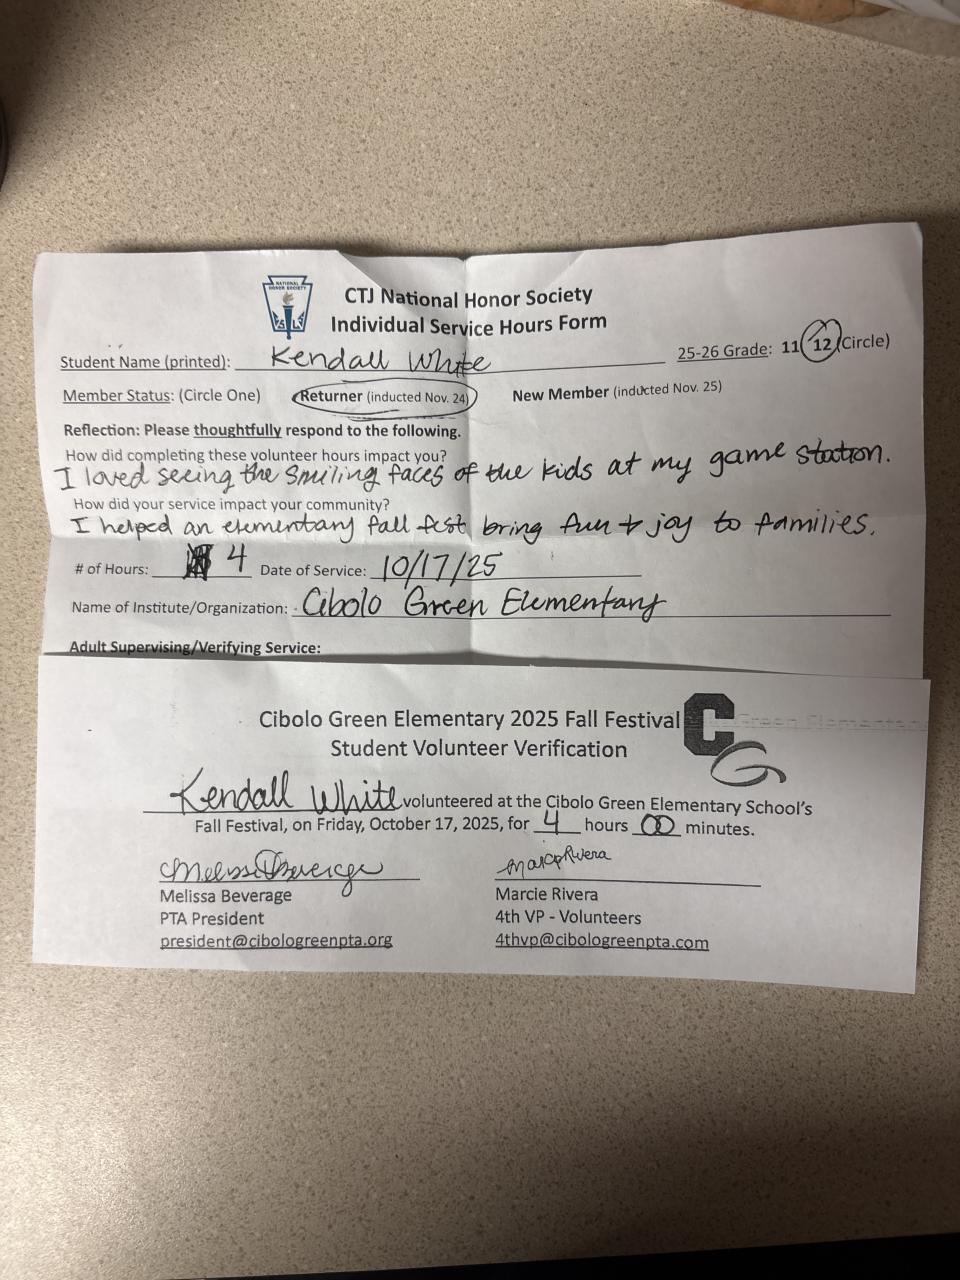 NATIONAL
HONOR SOCIETY
CTJ National Honor Society
Individual Service Hours Form
Student Name (printted): Kendall White 25-26 Grade: 11 12 (Circle)
Member Status: (Circle One) Returner (inducted Nov. 24) New Member (inducted Nov. 25)
Reflection: Please thoughtfully respond to the following.
How did completing these volunteer hours impact you?
I loved seeing the smiling faces of the kids at my game station.
How did your service impact your community?
I helped an elementary fall fest bring fun + joy to families.
# of Hours: 4 Date of Service: 10/17/25
Name of Institute/Organization: Cibolo Green Elementary
Adult Supervising/Verifying Service:
Cibolo Green Elementary 2025 Fall Festival CG
Student Volunteer Verification
Kendall White volunteered at the Cibolo Green Elementary School's
Fall Festival, on Friday, October 17, 2025, for 4 hours 00 minutes.
Melissa Beverage Marcie Rivera
Melissa Beverage Marcie Rivera
PTA President 4th VP - Volunteers
president@cibologreenpta.org 4thvp@cibologreenpta.com